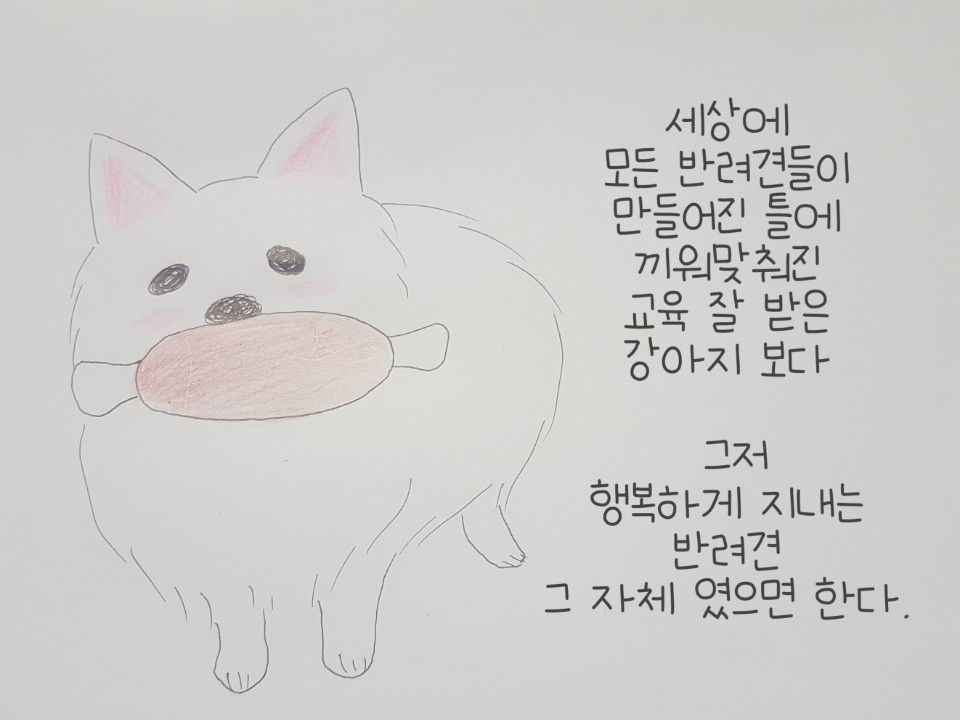 세상에
모든 반려견들이
만들어진 틀에
끼워맞춰진
교육 잘 받은
강아지 보다
그저
행복하게 지내는
반려견
그 자체 였으면 한다.